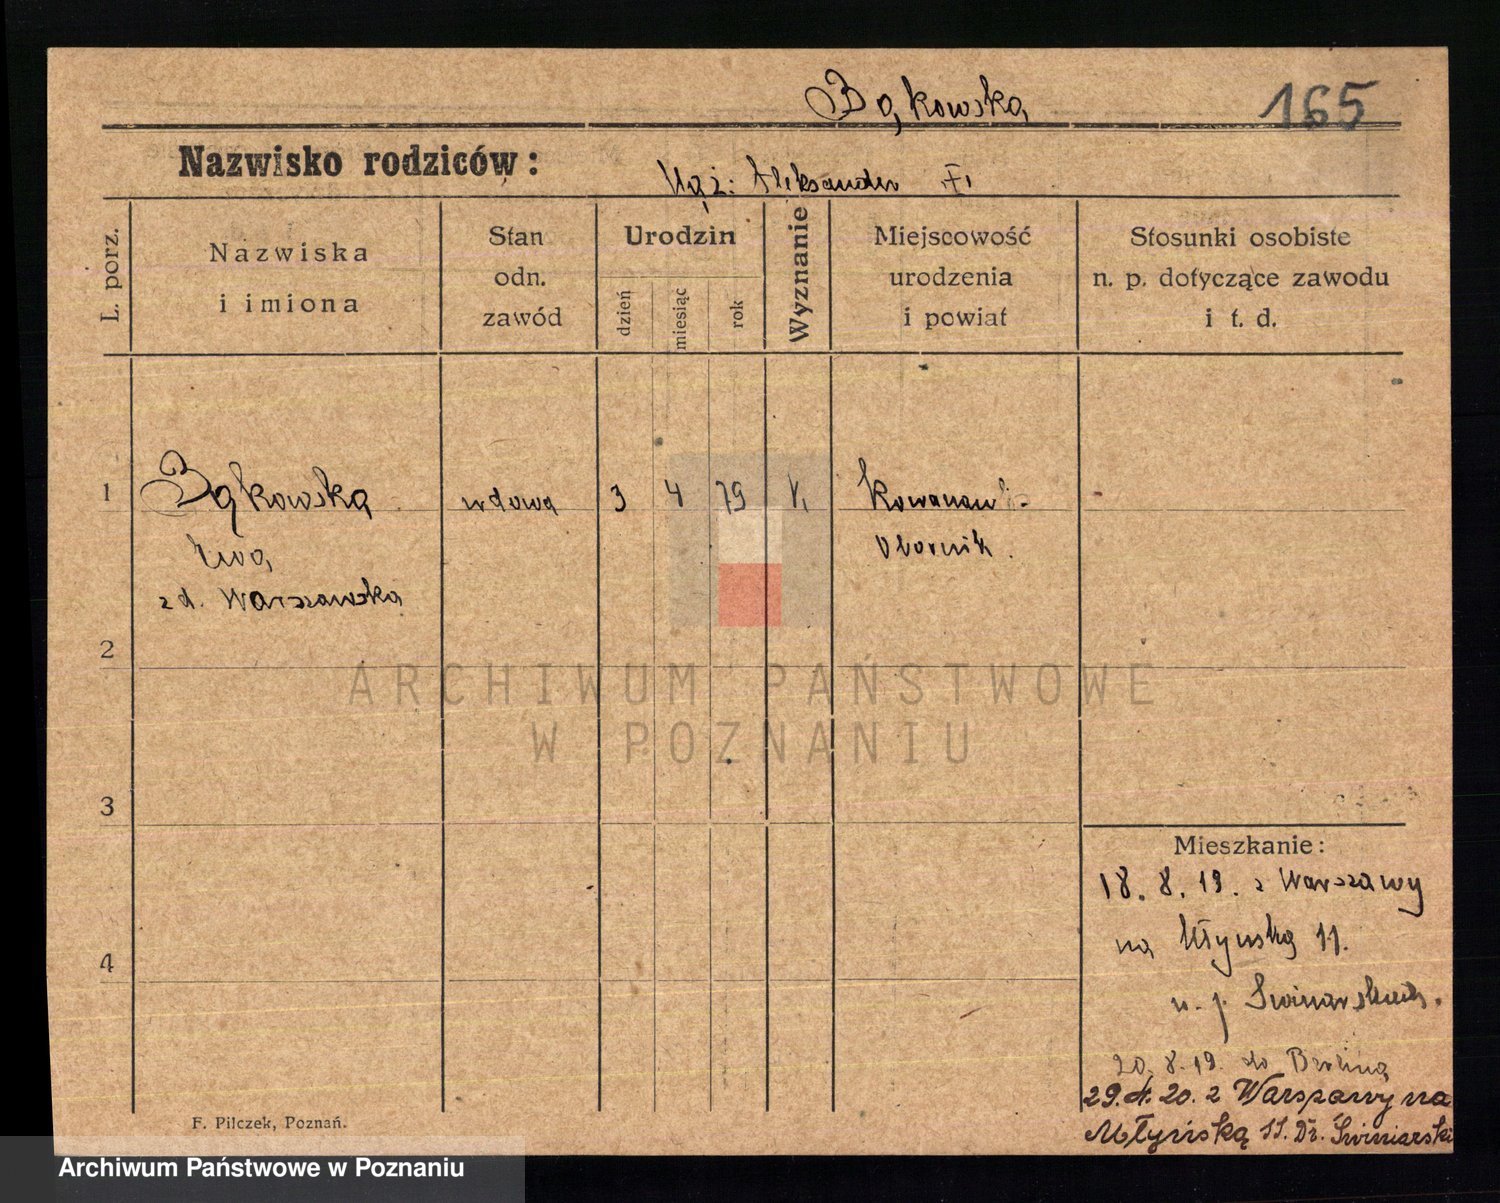 Bąkowska
165
Nazwisko rodziców:
Mąż: Aleksander †
L. porz.
Nazwiska
i imiona
Stan
odn.
zawód
Urodzin
dzień
miesiąc
rok
Wyznanie
Miejscowość
urodzenia
i powiat
Stosunki osobiste
n. p. dotyczące zawodu
i t. d.
1
Bąkowska
wdowa
3
4
79
k.
Ewa
Obornik.
zd. Warszawska
2
ARCHIWUM PAŃSTWOWE
W POZNANIU
3
Mieszkanie:
18. 8. 19. z Warszawy
na Młyńską 11.
4
u. p.
20. 8. 19. do Berlina
29. 4. 20. z Warszawy na
Młyńską 11. Dr. Świniarski
F. Pilczek, Poznań.
Archiwum Państwowe w Poznaniu